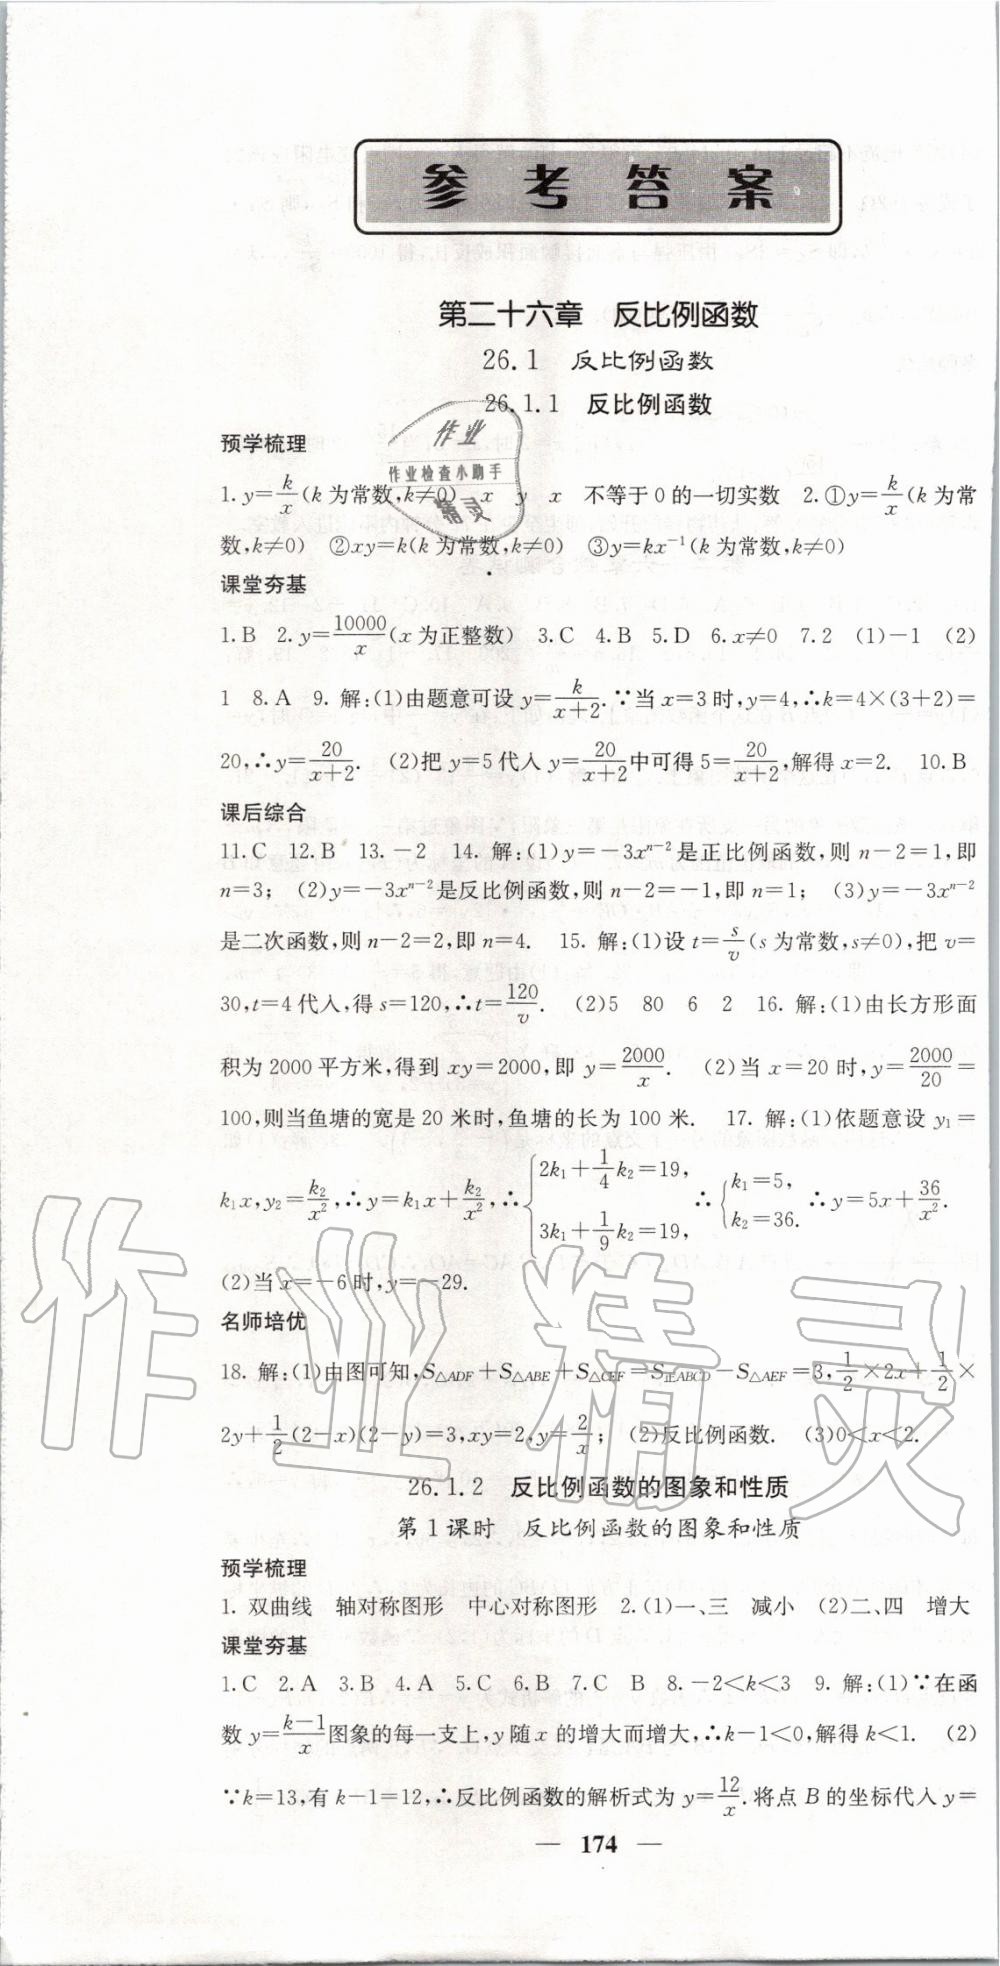 参考答案
第二十六章 反比例函数
26.1 反比例函数
26.1.1 反比例函数
作业
作业检查小助手
精灵
预学梳理
1. y=k/x(k 为常数,k≠0) x y x 不等于0的一切实数 2.①y=k/x(k 为常
数,k≠0) ②xy=k(k 为常数,k≠0) ③y=kx⁻¹(k 为常数,k≠0)
课堂夯基
1.B 2. y=10000/x(x 为正整数) 3.C 4.B 5.D 6.x≠0 7.2 (1)-1 (2)
1 8.A 9. 解:(1)由题意可设 y=k/(x+2).∵当 x=3 时,y=4,∴k=4×(3+2)=
20,∴y=20/(x+2). (2)把 y=5代入 y=20/(x+2)中可得 5=20/(x+2),解得 x=2. 10.B
课后综合
11.C 12.B 13.-2 14. 解:(1)y=-3xⁿ⁻²是正比例函数,则 n-2=1,即
n=3; (2)y=-3xⁿ⁻²是反比例函数,则 n-2=-1,即 n=1; (3)y=-3xⁿ⁻²
是二次函数,则 n-2=2,即 n=4. 15. 解:(1)设 t=s/v(s 为常数,s≠0),把 v=
30,t=4代入,得 s=120,∴t=120/v. (2)5 80 6 2 16. 解:(1)由长方形面
积为 2000 平方米,得到 xy=2000,即 y=2000/x. (2)当 x=20 时,y=2000/20=
100,则当鱼塘的宽是 20 米时,鱼塘的长为 100 米. 17. 解:(1)依题意设 y₁=
k₁x,y₂=k₂/x²,∴y=k₁x+k₂/x²,∴{2k₁+1/4k₂=19, 3k₁+1/9k₂=19, ∴{k₁=5, k₂=36. ∴y=5x+36/x².
(2)当 x=-6 时,y=-29.
名师培优
18. 解:(1)由图可知,S△ADF+S△ABE+S△CEF=S正ABCD-S△AEF=3,1/2×2x+1/2×
2y+1/2(2-x)(2-y)=3,xy=2,y=2/x; (2)反比例函数. (3)0<x<2.
26.1.2 反比例函数的图象和性质
第1课时 反比例函数的图象和性质
预学梳理
1. 双曲线 轴对称图形 中心对称图形 2.(1)一、三 减小 (2)二、四 增大
课堂夯基
1.C 2.A 3.B 4.A 5.C 6.B 7.C B 8.-2<k<3 9. 解:(1)∵在函
数 y=(k-1)/x图象的每一支上,y 随 x 的增大而增大,∴k-1<0,解得 k<1. (2)
∵k=13,有 k-1=12,∴反比例函数的解析式为 y=12/x.将点 B 的坐标代入 y=
— 174 —
作业精灵